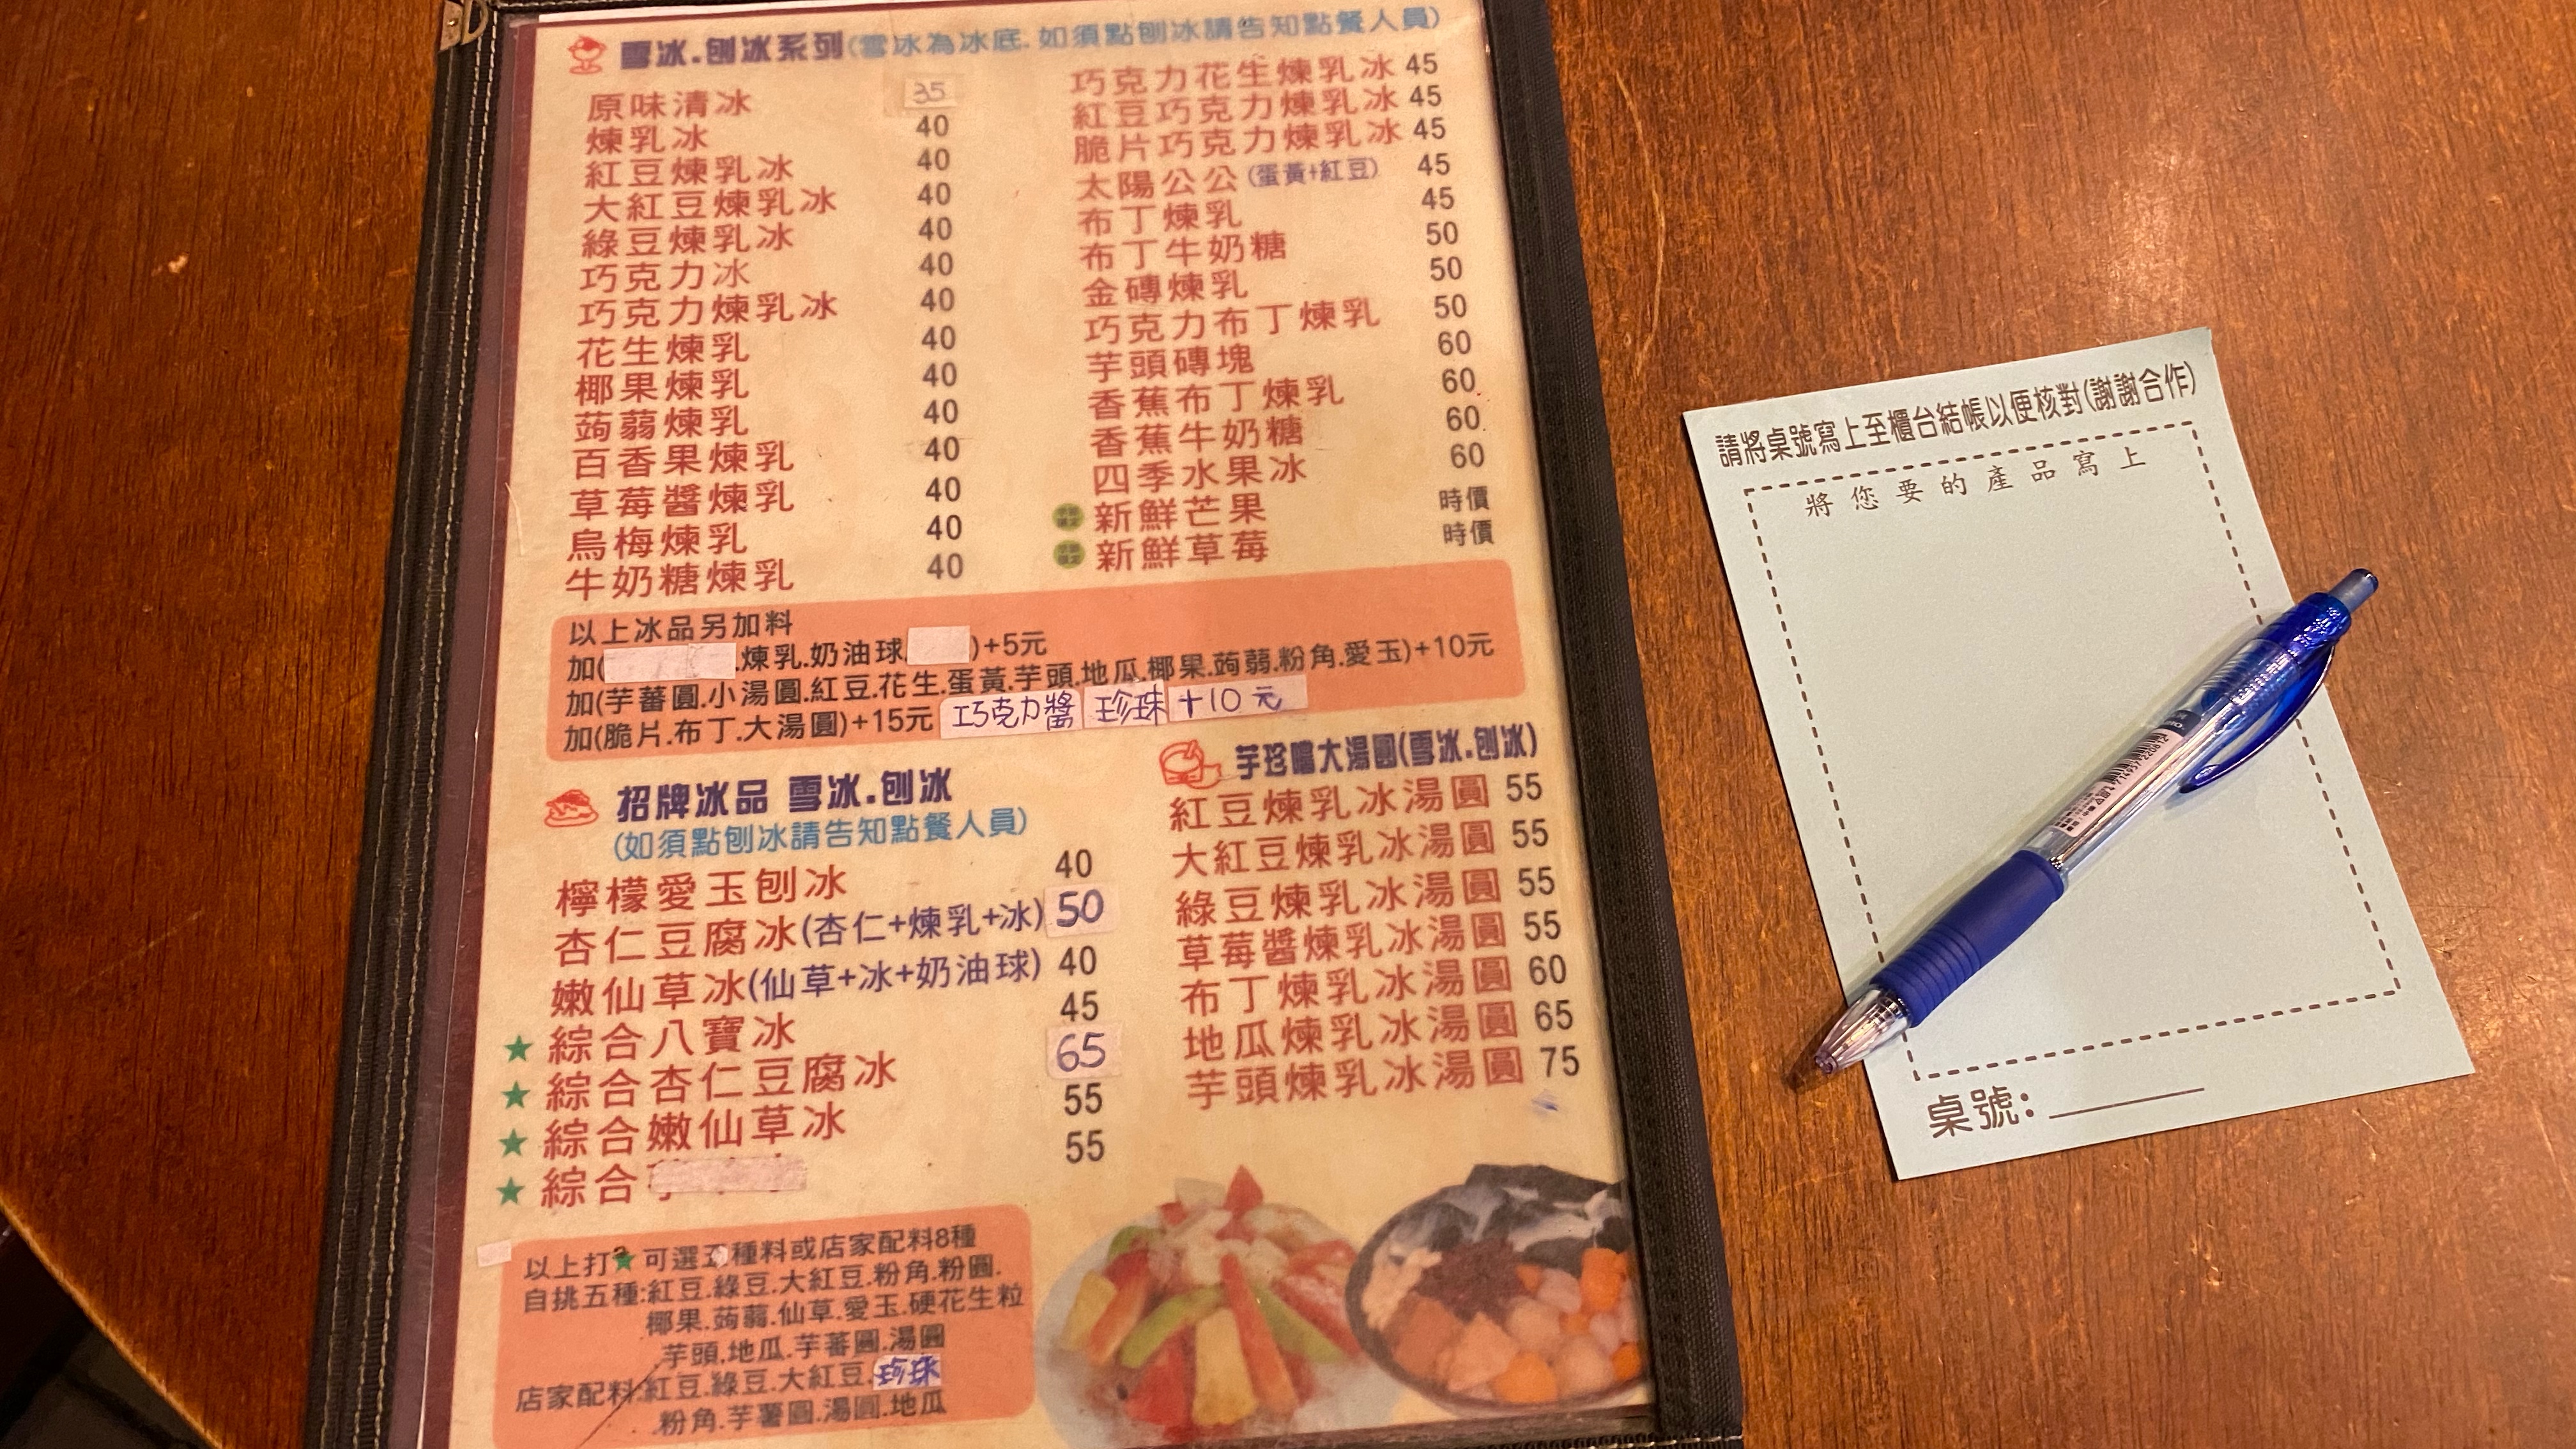 雪冰.刨冰系列(雪冰為冰底.如須點刨冰請告知點餐人員)
原味清冰 35
煉乳冰 40
紅豆煉乳冰 40
大紅豆煉乳冰 40
綠豆煉乳冰 40
巧克力冰 40
巧克力煉乳冰 40
花生煉乳 40
椰果煉乳 40
蒟蒻煉乳 40
百香果煉乳 40
草莓醬煉乳 40
烏梅煉乳 40
牛奶糖煉乳 40
巧克力花生煉乳冰 45
紅豆巧克力煉乳冰 45
脆片巧克力煉乳冰 45
太陽公公(蛋黃+紅豆) 45
布丁煉乳 45
布丁牛奶糖 50
金磚煉乳 50
巧克力布丁煉乳 50
芋頭磚塊 60
香蕉布丁煉乳 60
香蕉牛奶糖 60
四季水果冰 60
新鮮芒果 時價
新鮮草莓 時價
以上冰品另加料
加( .煉乳.奶油球 )+5元
加(芋蕃圓.小湯圓.紅豆.花生.蛋黃.芋頭.地瓜.椰果.蒟蒻.粉角.愛玉)+10元
加(脆片.布丁.大湯圓)+15元 巧克力醬 珍珠 +10元
招牌冰品 雪冰.刨冰
(如須點刨冰請告知點餐人員)
檸檬愛玉刨冰 40
杏仁豆腐冰(杏仁+煉乳+冰) 50
嫩仙草冰(仙草+冰+奶油球) 40
★ 綜合八寶冰 45
★ 綜合杏仁豆腐冰 65
★ 綜合嫩仙草冰 55
★ 綜合 55
芋珍嚐大湯圓(雪冰.刨冰)
紅豆煉乳冰湯圓 55
大紅豆煉乳冰湯圓 55
綠豆煉乳冰湯圓 55
草莓醬煉乳冰湯圓 55
布丁煉乳冰湯圓 60
地瓜煉乳冰湯圓 65
芋頭煉乳冰湯圓 75
以上打★可選五種料或店家配料8種
自挑五種:紅豆.綠豆.大紅豆.粉角.粉圓.
椰果.蒟蒻.仙草.愛玉.硬花生粒
芋頭.地瓜.芋蕃圓.湯圓
店家配料:紅豆.綠豆.大紅豆.珍珠
粉角.芋薯圓.湯圓.地瓜
請將桌號寫上至櫃台結帳以便核對(謝謝合作)
將您要的產品寫上
桌號: